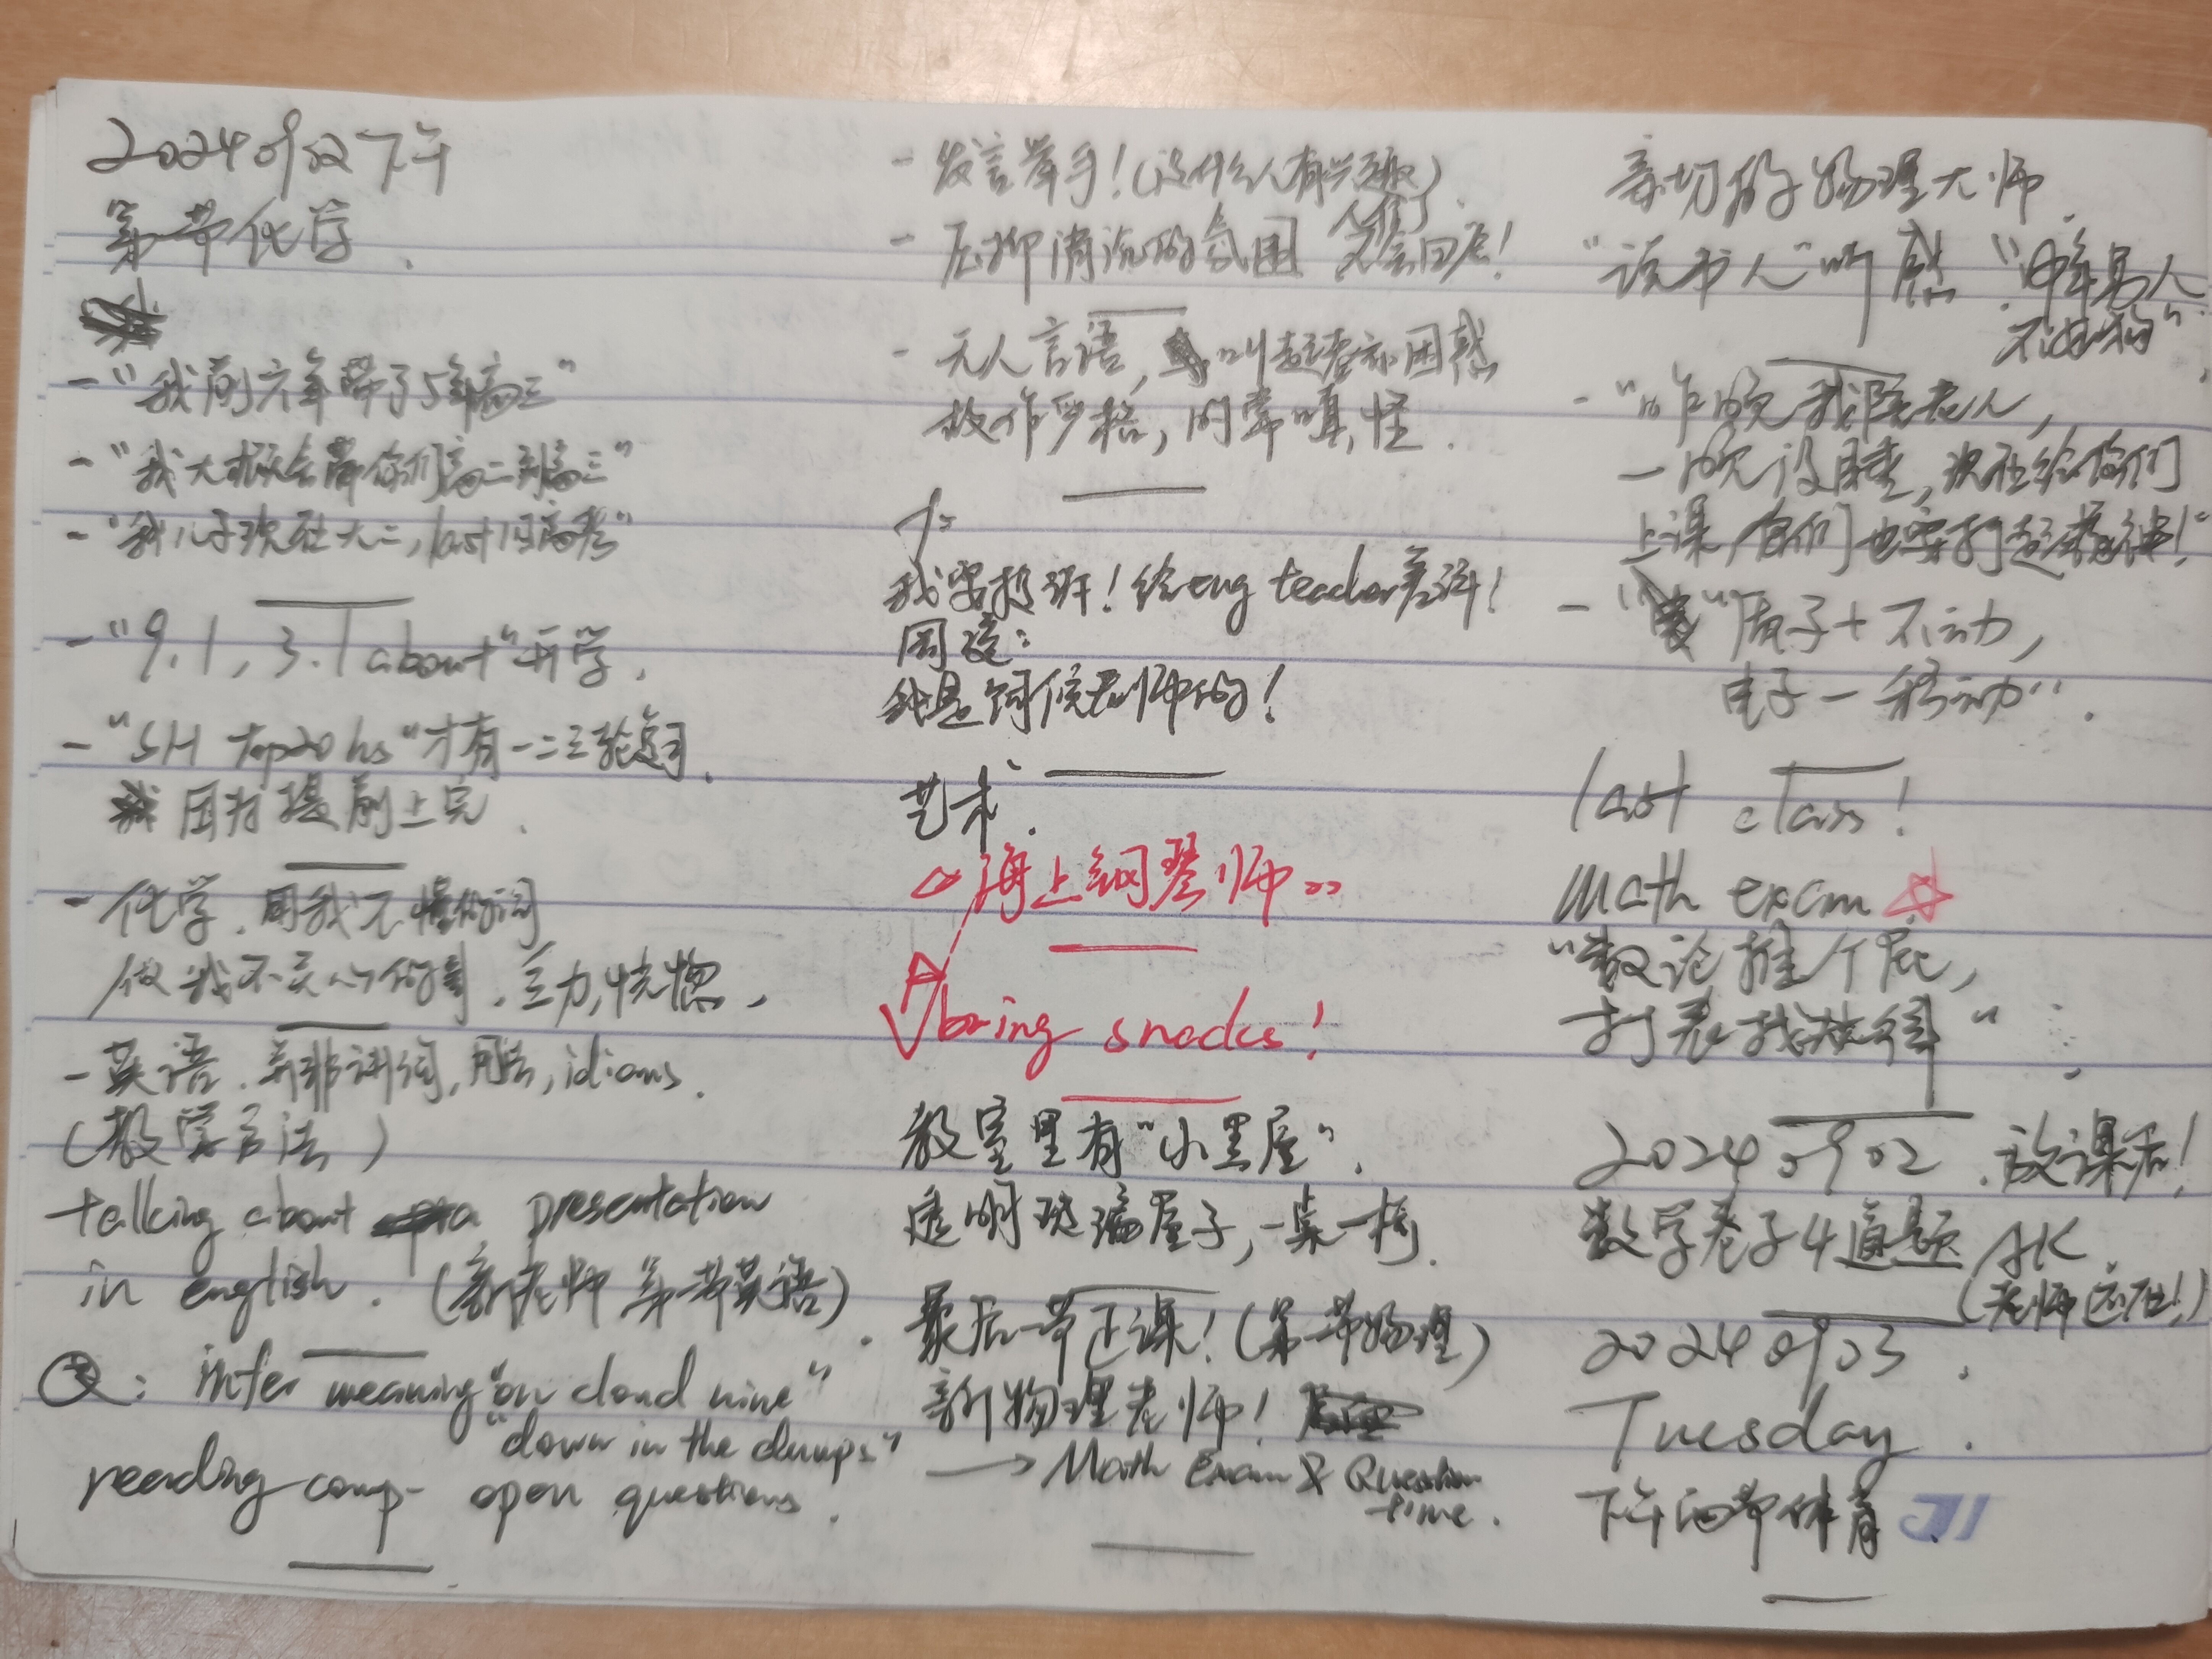 20240902下午
第一节化学.
-"我前六年带了5年高三"
-"我大概会带你们高二到高三"
-"我儿子现在大二, last 1届高考"
-"9.1, 3.1 about"开学.
-"SH top20 hs"才有一二三轮复习.
因为提前上完.
-化学.用我不懂的词
做我不关心的事.主力,恍惚,
-英语.无非讲词,用法,idioms.
(教学方法)
talking about a presentation
in english. (新老师 第一节英语).
Q: infer meaning "on cloud nine"
"down in the dumps"
reading comp- open questions.
-发言举手!(没什么人有兴趣).
-压抑消沉的氛围
-无人言语, 叫起者亦困惑
故作严格,时常嗔怪.
我要换班!给eng teacher差评!
周 :
我是伺候老师的!
艺术.
海上钢琴师
bring snacks!
教室里有"小黑屋".
透明玻璃屋子,一桌一椅.
最后一节正课!(第一节物理)
新物理老师!
→ Math Exam & Question
time.
亲切的物理大师.
"读书人"听感.
-"昨晚我陪老人,
一晚没睡,现在给你们
上课,你们也要打起精神!"
-"质子+不动,
电子-移动".
last class!
Math exam ☆
"数论推个屁,
打表找规律".
20240902.放课后!
数学卷子4道题AK.
(老师还在!)
20240903.
Tuesday.
下午两节体育.